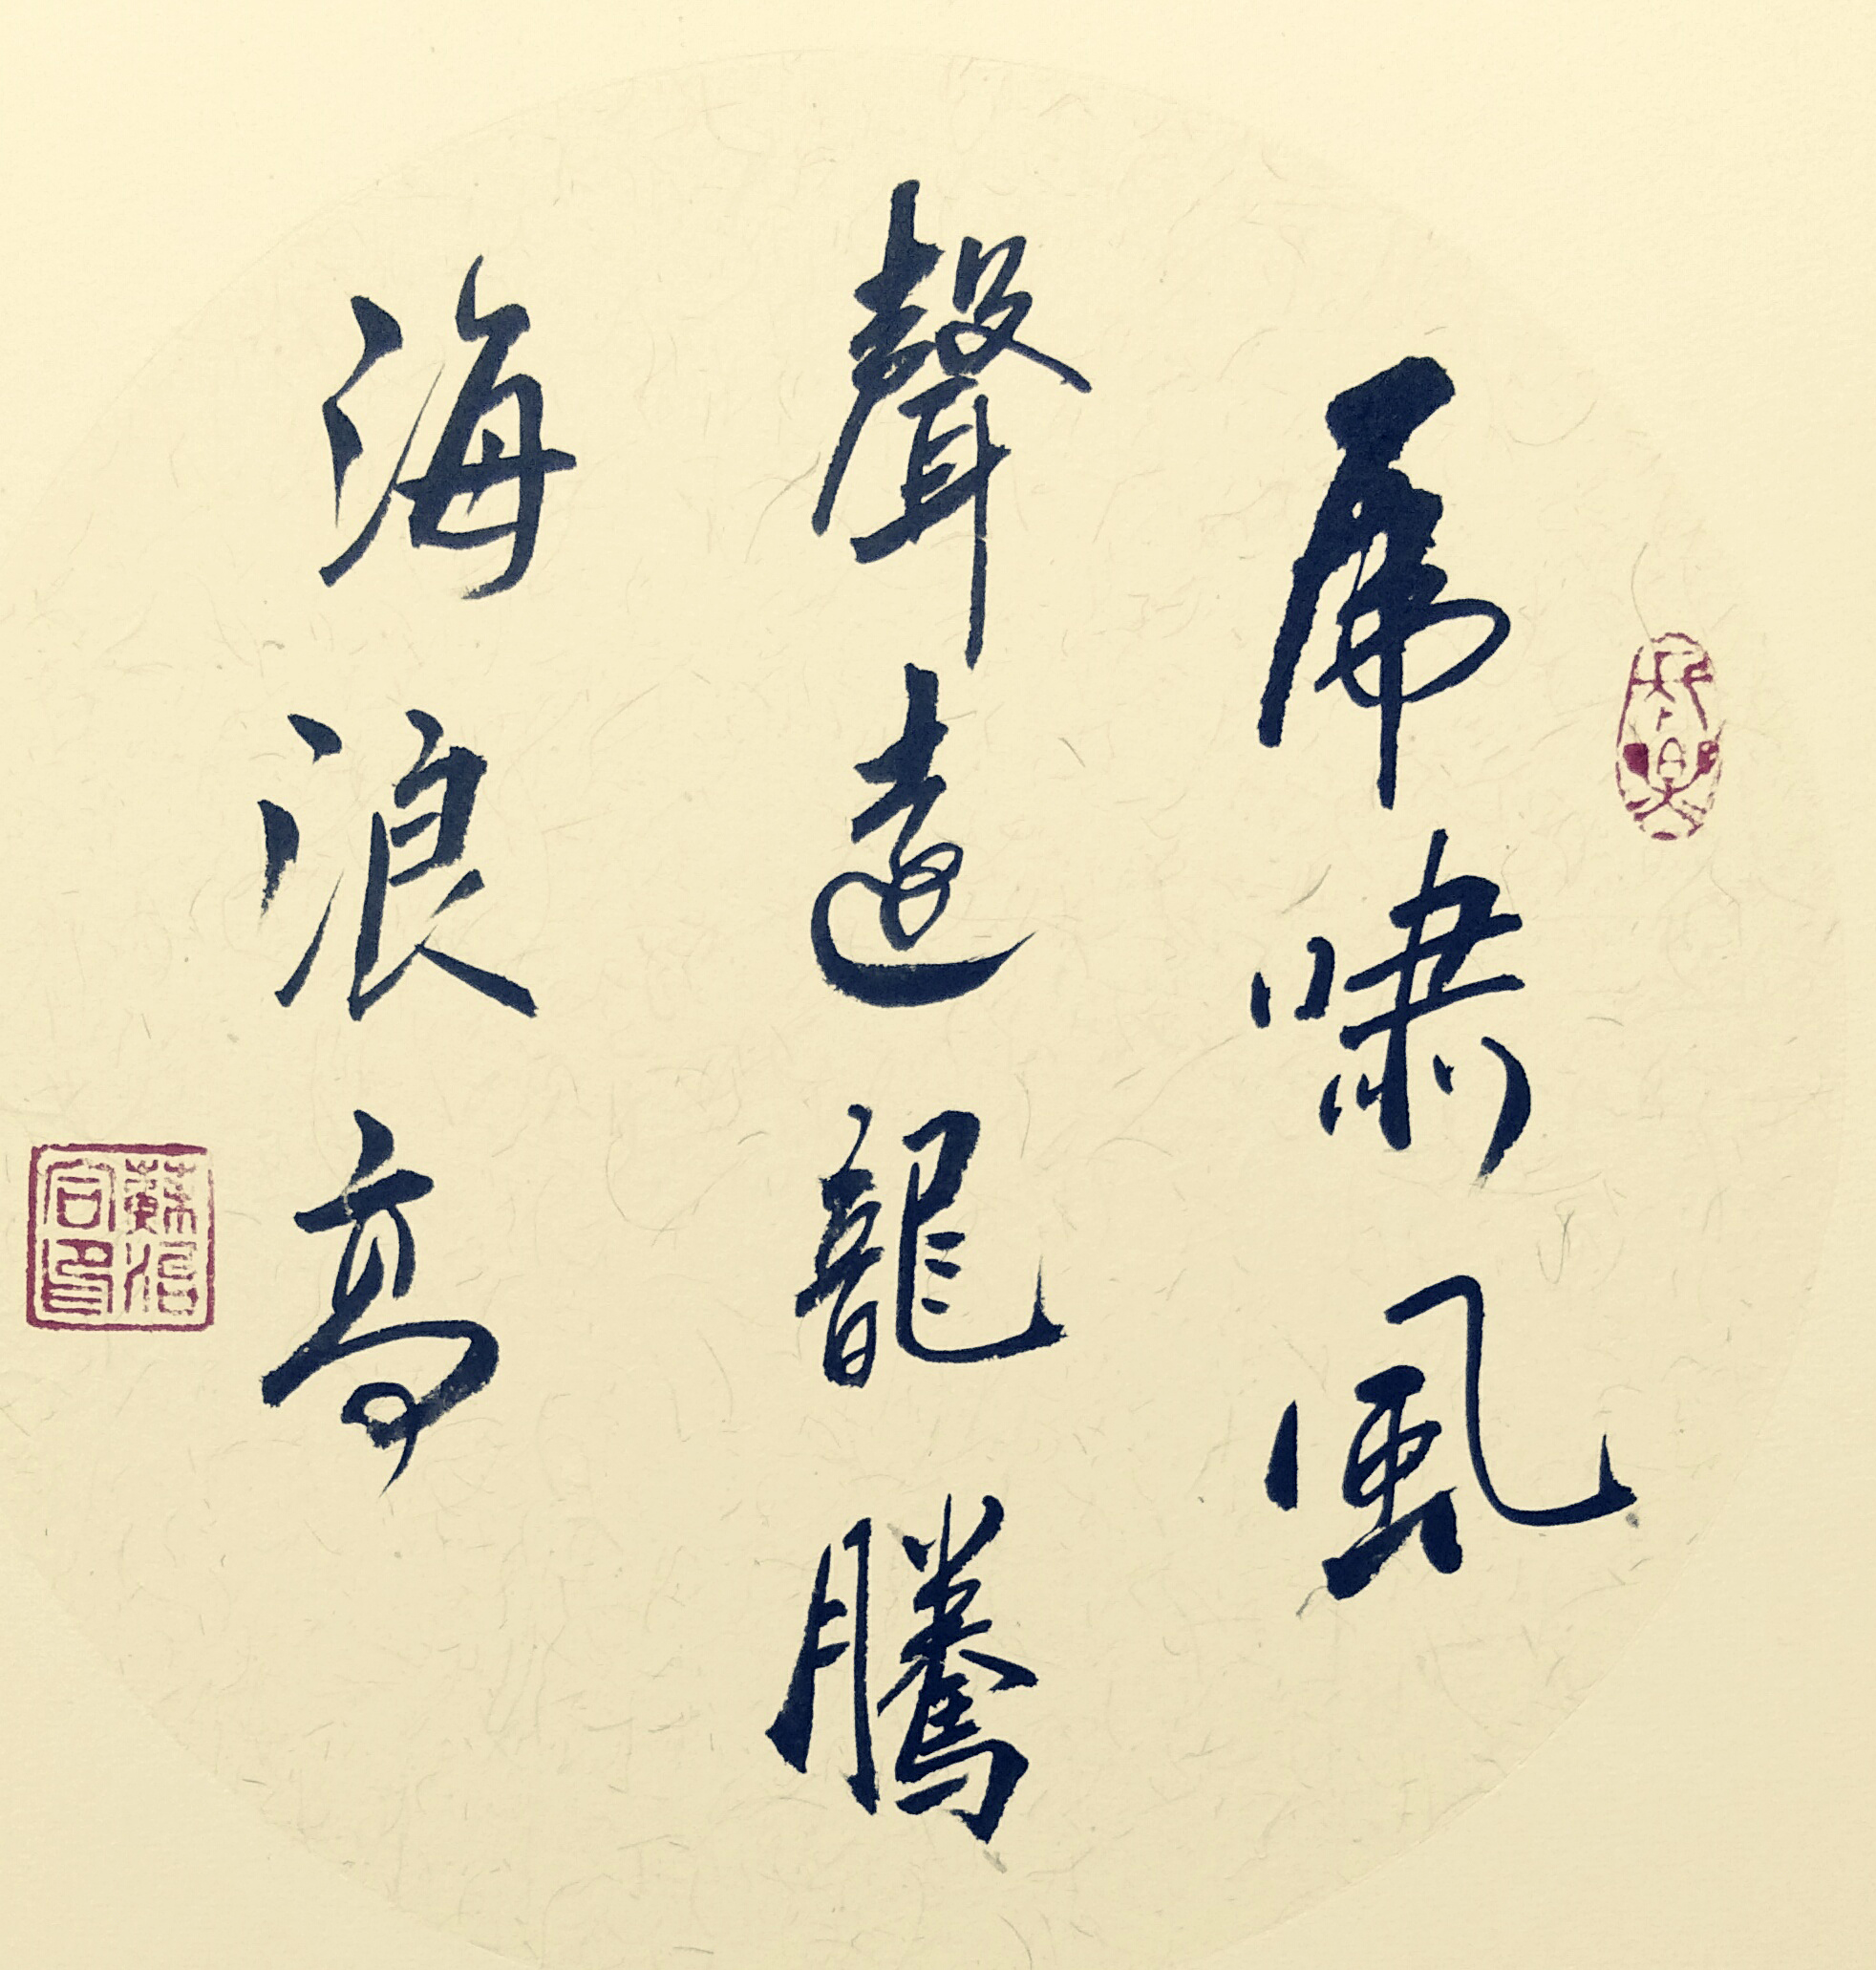 虎嘯風
聲遠龍騰
海浪高